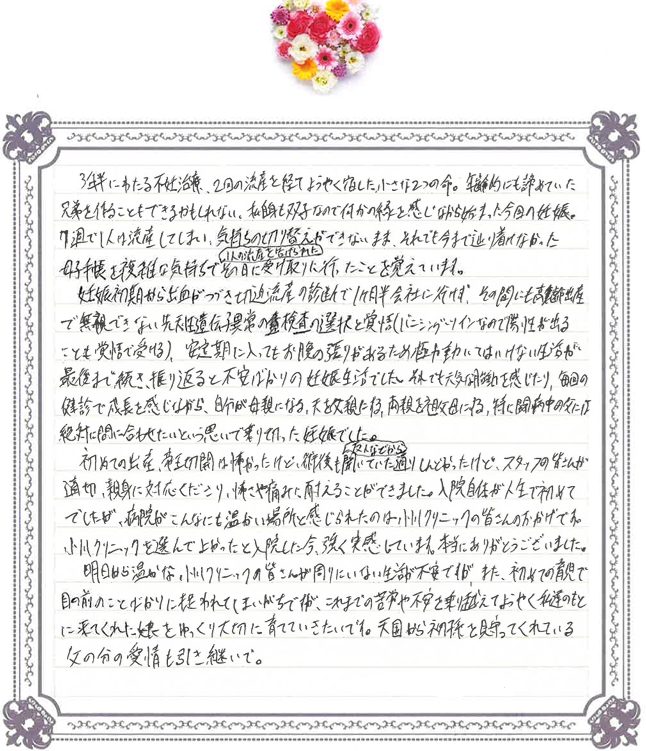 3年半にわたる不妊治療、2回の流産を経てようやく宿した小さな2つの命。年齢的にも諦めていた
兄弟を作ることもできるかもしれない、私自身も双子なので何かの縁を感じながら始まった今回の妊娠。
7週で1人は流産してしまい、気持ちの切り替えができないまま、それでも今まで辿り着けなかった
1人が流産を告げられた
母子手帳を複雑な気持ちでその日に受け取りに行ったことを覚えています。
妊娠初期から出血がつづき切迫流産の診断で1ヶ月半会社に行けず、その間にも高齢出産
で無視できない先天性遺伝子異常の検査の選択と覚悟(バニシングツインなので陽性が出る
ことも覚悟で受ける)、安定期に入ってもお腹の張りがあるため極力動いてはいけない生活が
最後まで続き、振り返ると不安ばかりの妊娠生活でした。それでも元気な胎動を感じたり、毎回の
健診で成長を感じながら、自分が母親になる、夫を父親にする、両親を祖父母にする、特に闘病中の父には
絶対に間に合わせたいという思いで乗り切った妊娠でした。
初めての出産、帝王切開は怖かったけど、術後も聞いていた通りしんどかったけど、スタッフの皆さんが
適切、親身に対応くださり、怖さや痛みに耐えることができました。入院自体が人生で初めて
でしたが、病院がこんなにも温かい場所と感じられたのは小川クリニックの皆さんのおかげです。
小川クリニックを選んで上かったと入院した今、強く実感しています。本当にありがとうございました。
明日から温かな小川クリニックの皆さんが周りにいない生活が不安ですが、また、初めての育児で
目の前のことばかりに捉われてしまいがちですが、これまでの苦労や不安を乗り越えてようやく私達のもと
に来てくれた娘をゆっくり大切に育てていきたいです。天国から初孫を見守ってくれている
父の分の愛情も引き継いで。